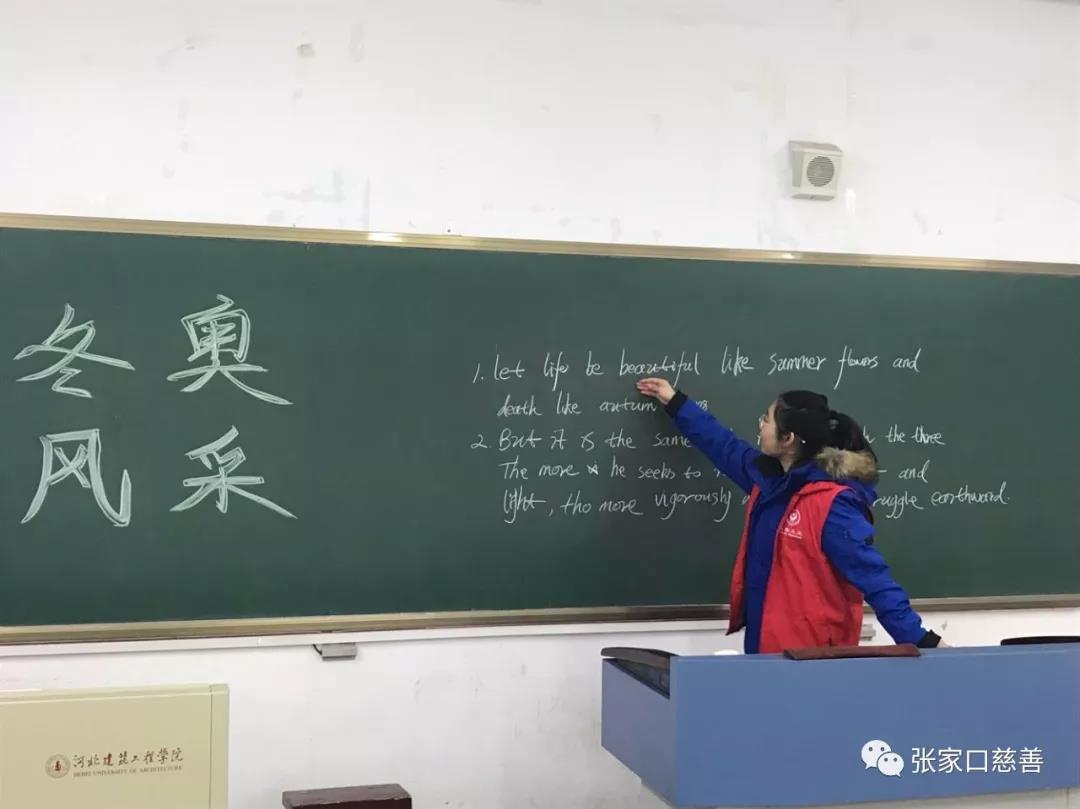 冬奥
风采
1. let life be beautiful like summer flowers and
death like autum
2. But it is the same the three
The more he seeks to and
light, the more vigorously ruggle earthward.
河北建筑工程学院
HEBEI UNIVERSITY OF ARCHITECTURE
张家口慈善